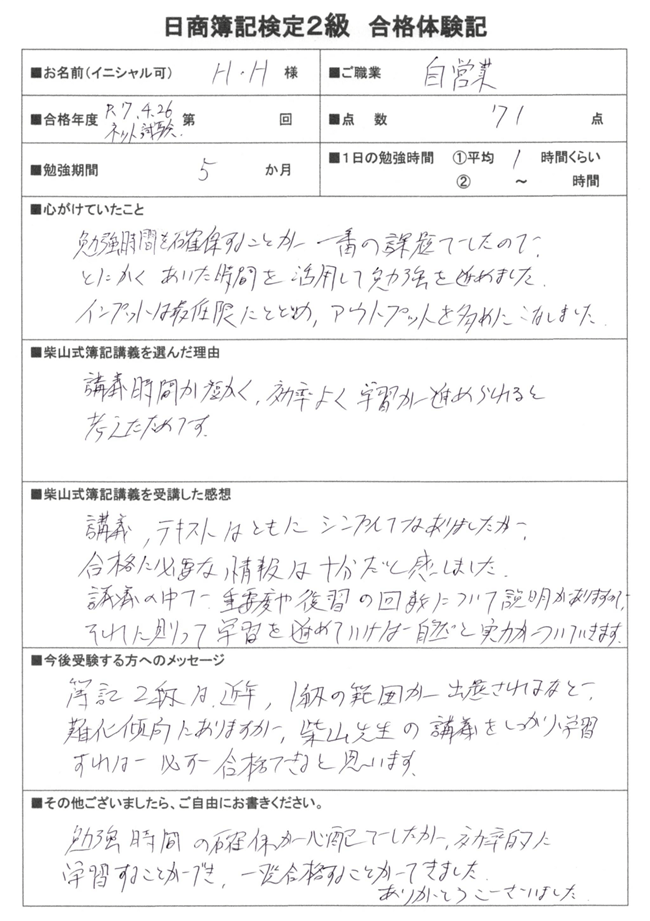 日商簿記検定2級 合格体験記
■お名前(イニシャル可) H・H 様
■ご職業 自営業
■合格年度 R7.4.26 ネット試験 第 回
■点 数 71 点
■勉強期間 5 か月
■1日の勉強時間 ①平均 1 時間くらい
② ～ 時間
■心がけていたこと
勉強時間を確保することが一番の課題でしたので、
とにかくあいた時間を活用して勉強を進めました。
インプットは最低限にとどめ、アウトプットを多めにこなしました。
■柴山式簿記講義を選んだ理由
講義時間が短かく、効率よく学習が進められると
考えたためです。
■柴山式簿記講義を受講した感想
講義、テキストはともにシンプルではありましたが、
合格に必要な情報は十分だと感じました。
講義の中で重要度や復習の回数について説明がありますので、
それに則って学習を進めていけば自然と実力がついていきます。
■今後受験する方へのメッセージ
簿記2級は近年、1級の範囲が出題されるなど、
難化傾向にありますが、柴山先生の講義をしっかり学習
すれば必ず合格できると思います。
■その他ございましたら、ご自由にお書きください。
勉強時間の確保が心配でしたが、効率的に
学習することができ、一発合格することができました。
ありがとうございました。